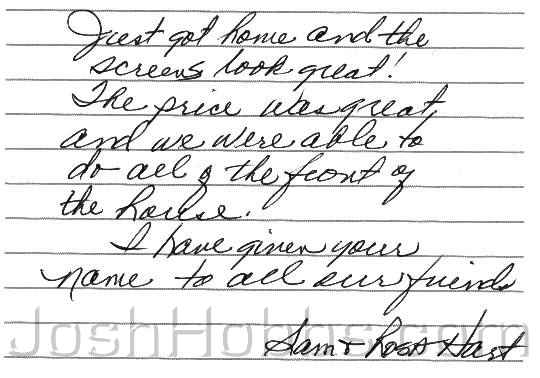 Just got home and the
screens look great!
The price was great,
and we were able to
do all of the front of
the house.
I have given your
name to all our friends
JoshHobbs.com
Sam & Rosa Hart